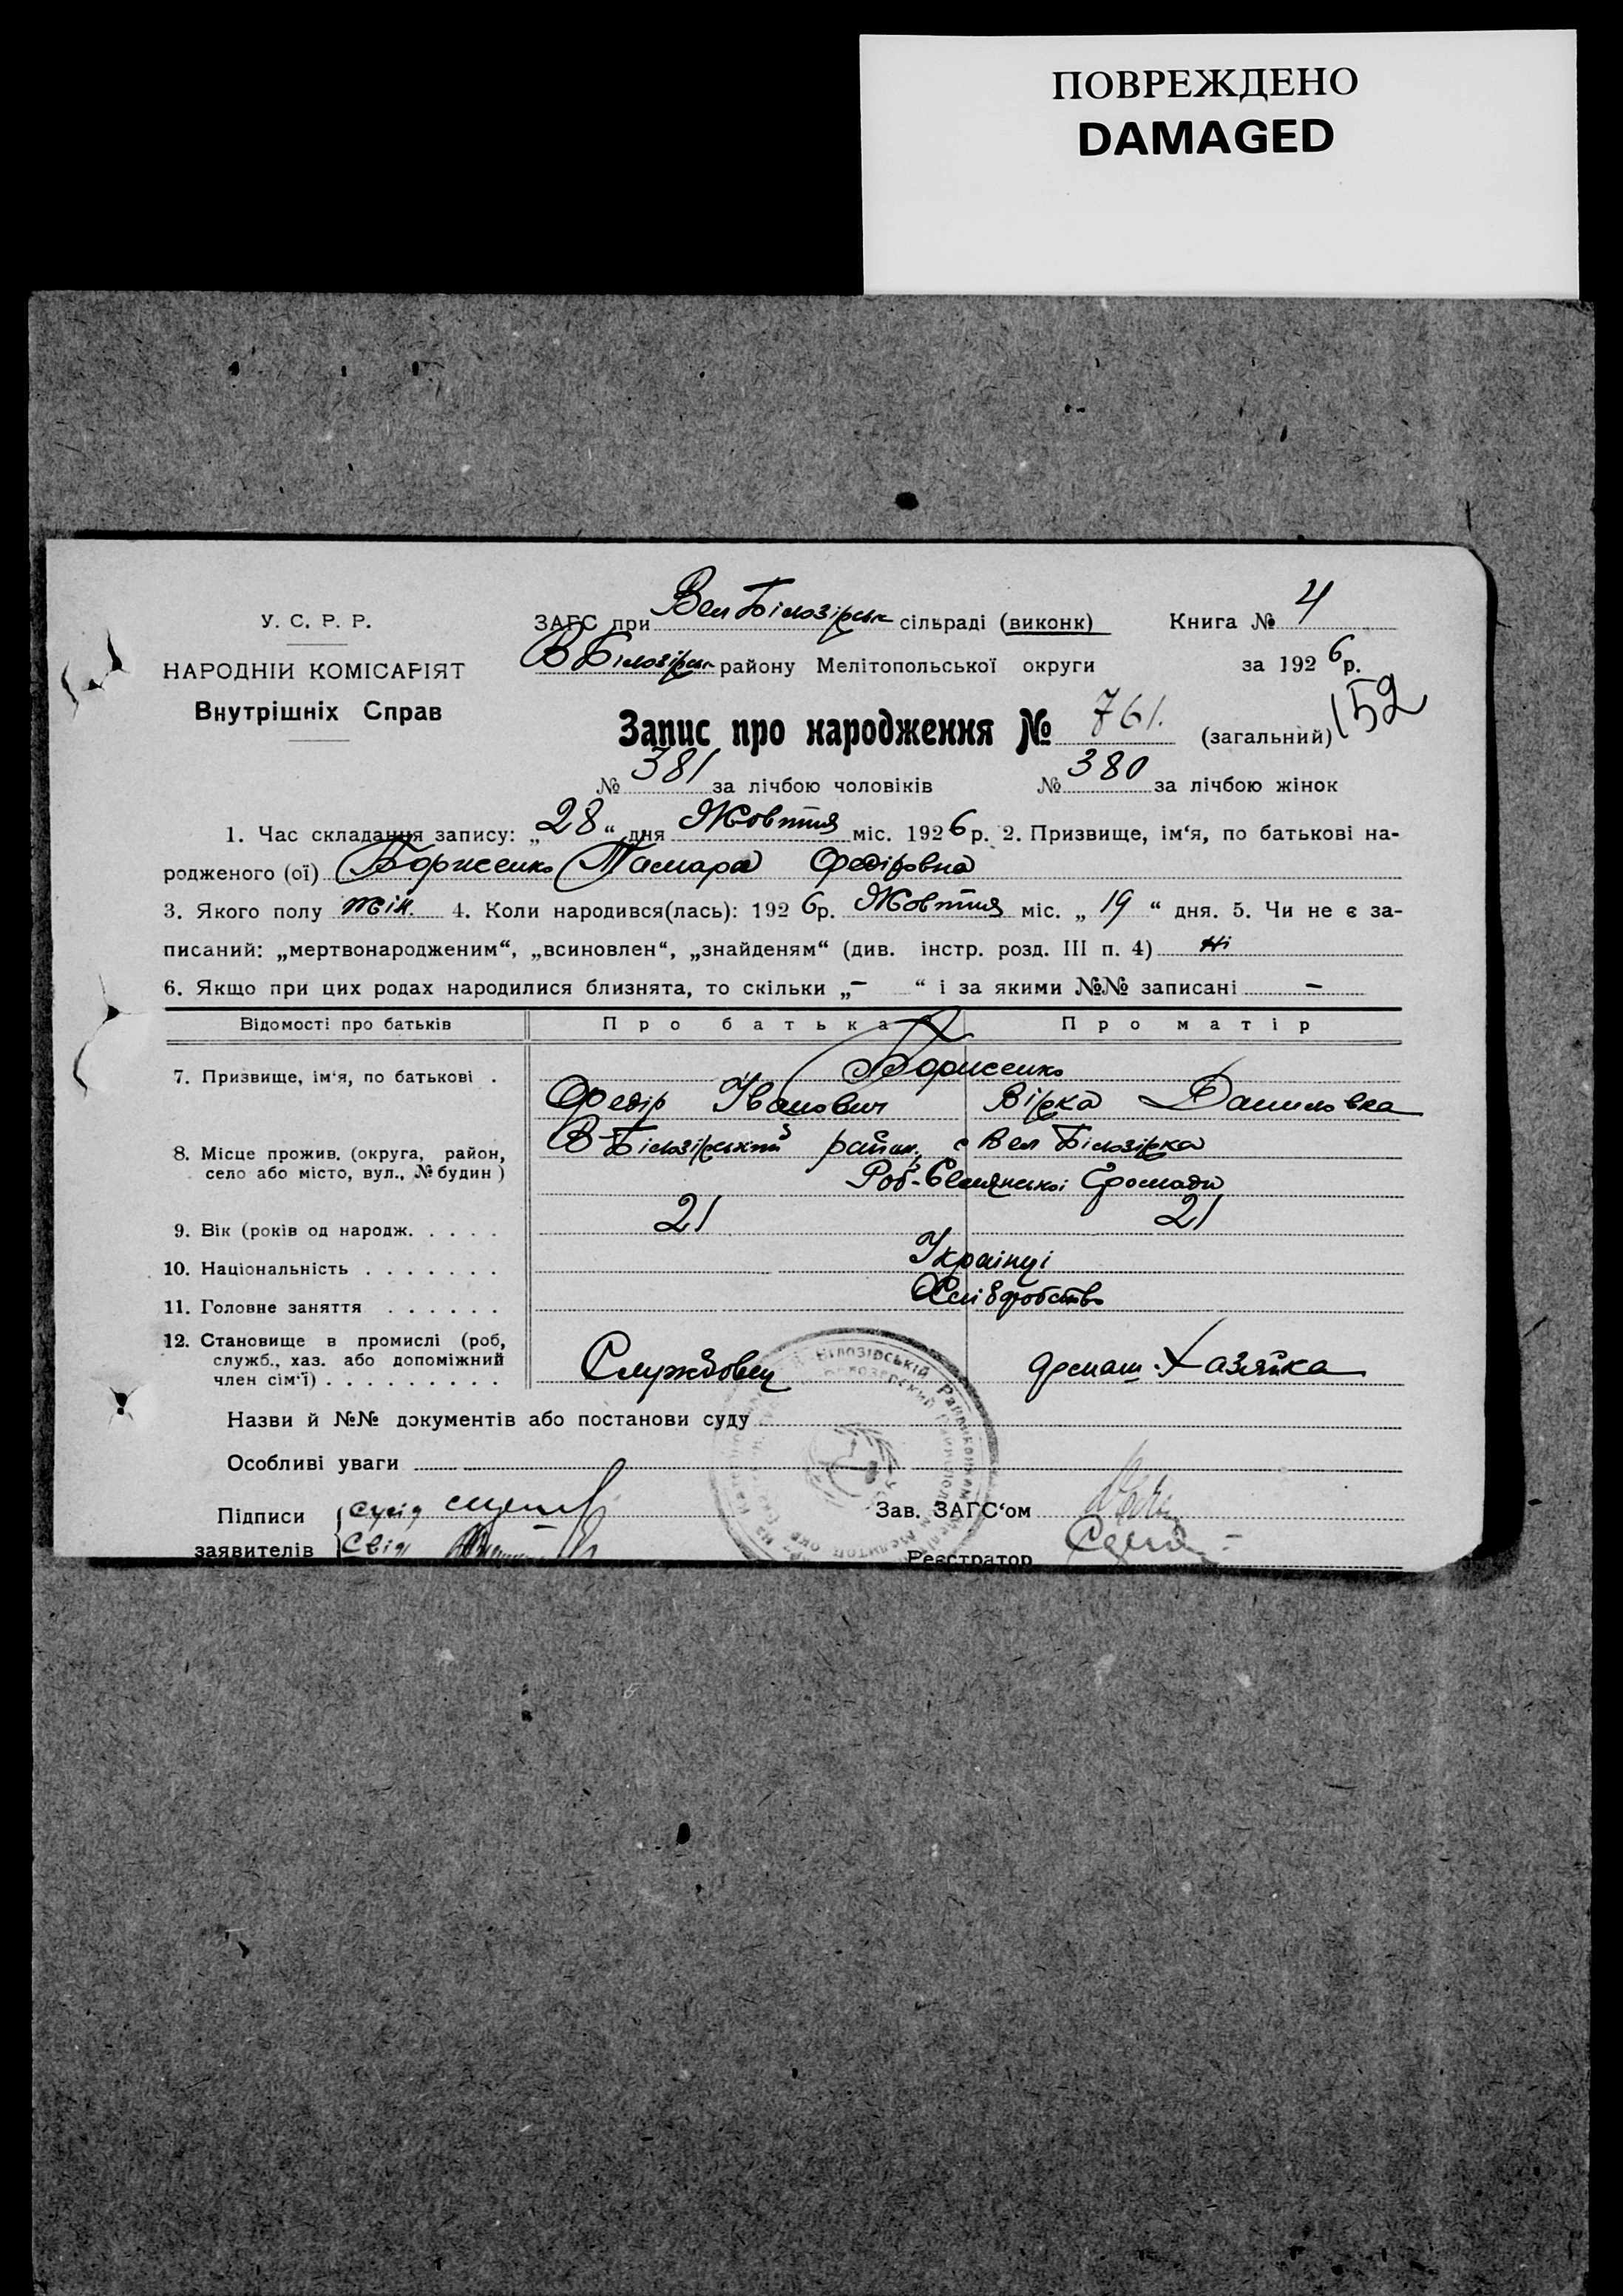 ПОВРЕЖДЕНО
DAMAGED
У. С. Р. Р.
НАРОДНІИ КОМІСАРІЯТ
Внутрішніх Справ
ЗАГС при Вел Білозірськ сільраді (виконк)
Книга № 4
В Білозірськ району Мелітопольської округи
за 1926 р.
152
Запис про народження № 761. (загальний)
№ 381 за лічбою чоловіків № 380 за лічбою жінок
1. Час складання запису: „28“ дня Жовтня міс. 1926 р. 2. Призвище, ім‘я, по батькові на-
родженого (ої) Борисенко Тамара Федіровна
3. Якого полу жін. 4. Коли народився(лась): 1926 р. Жовтня міс. „19“ дня. 5. Чи не є за-
писаний: „мертвонародженим“, „всиновлен“, „знайденям“ (див. інстр. розд. III п. 4) Ні
6. Якщо при цих родах народилися близнята, то скільки „–“ і за якими №№ записані –
Відомості про батьків Про батька Про матір
7. Призвище, ім‘я, по батькові . Борисенко
Федір Іванович Вірка Даниловна
8. Місце прожив. (округа, район, В-Білозірський район, с Вел Білозірка
село або місто, вул., № будин) Роб-Селянської Громади
9. Вік (років од народж. . . . . 21 21
10. Національність . . . . . . . Українці
11. Головне заняття . . . . . . Хліборобство
12. Становище в промислі (роб,
служб., хаз. або допоміжний
член сім‘ї) . . . . . . . . . Службовец домаш. Хазяйка
Назви й №№ документів або постанови суду
Особливі уваги
Підписи
Зав. ЗАГС‘ом
заявителів
Реєстратор